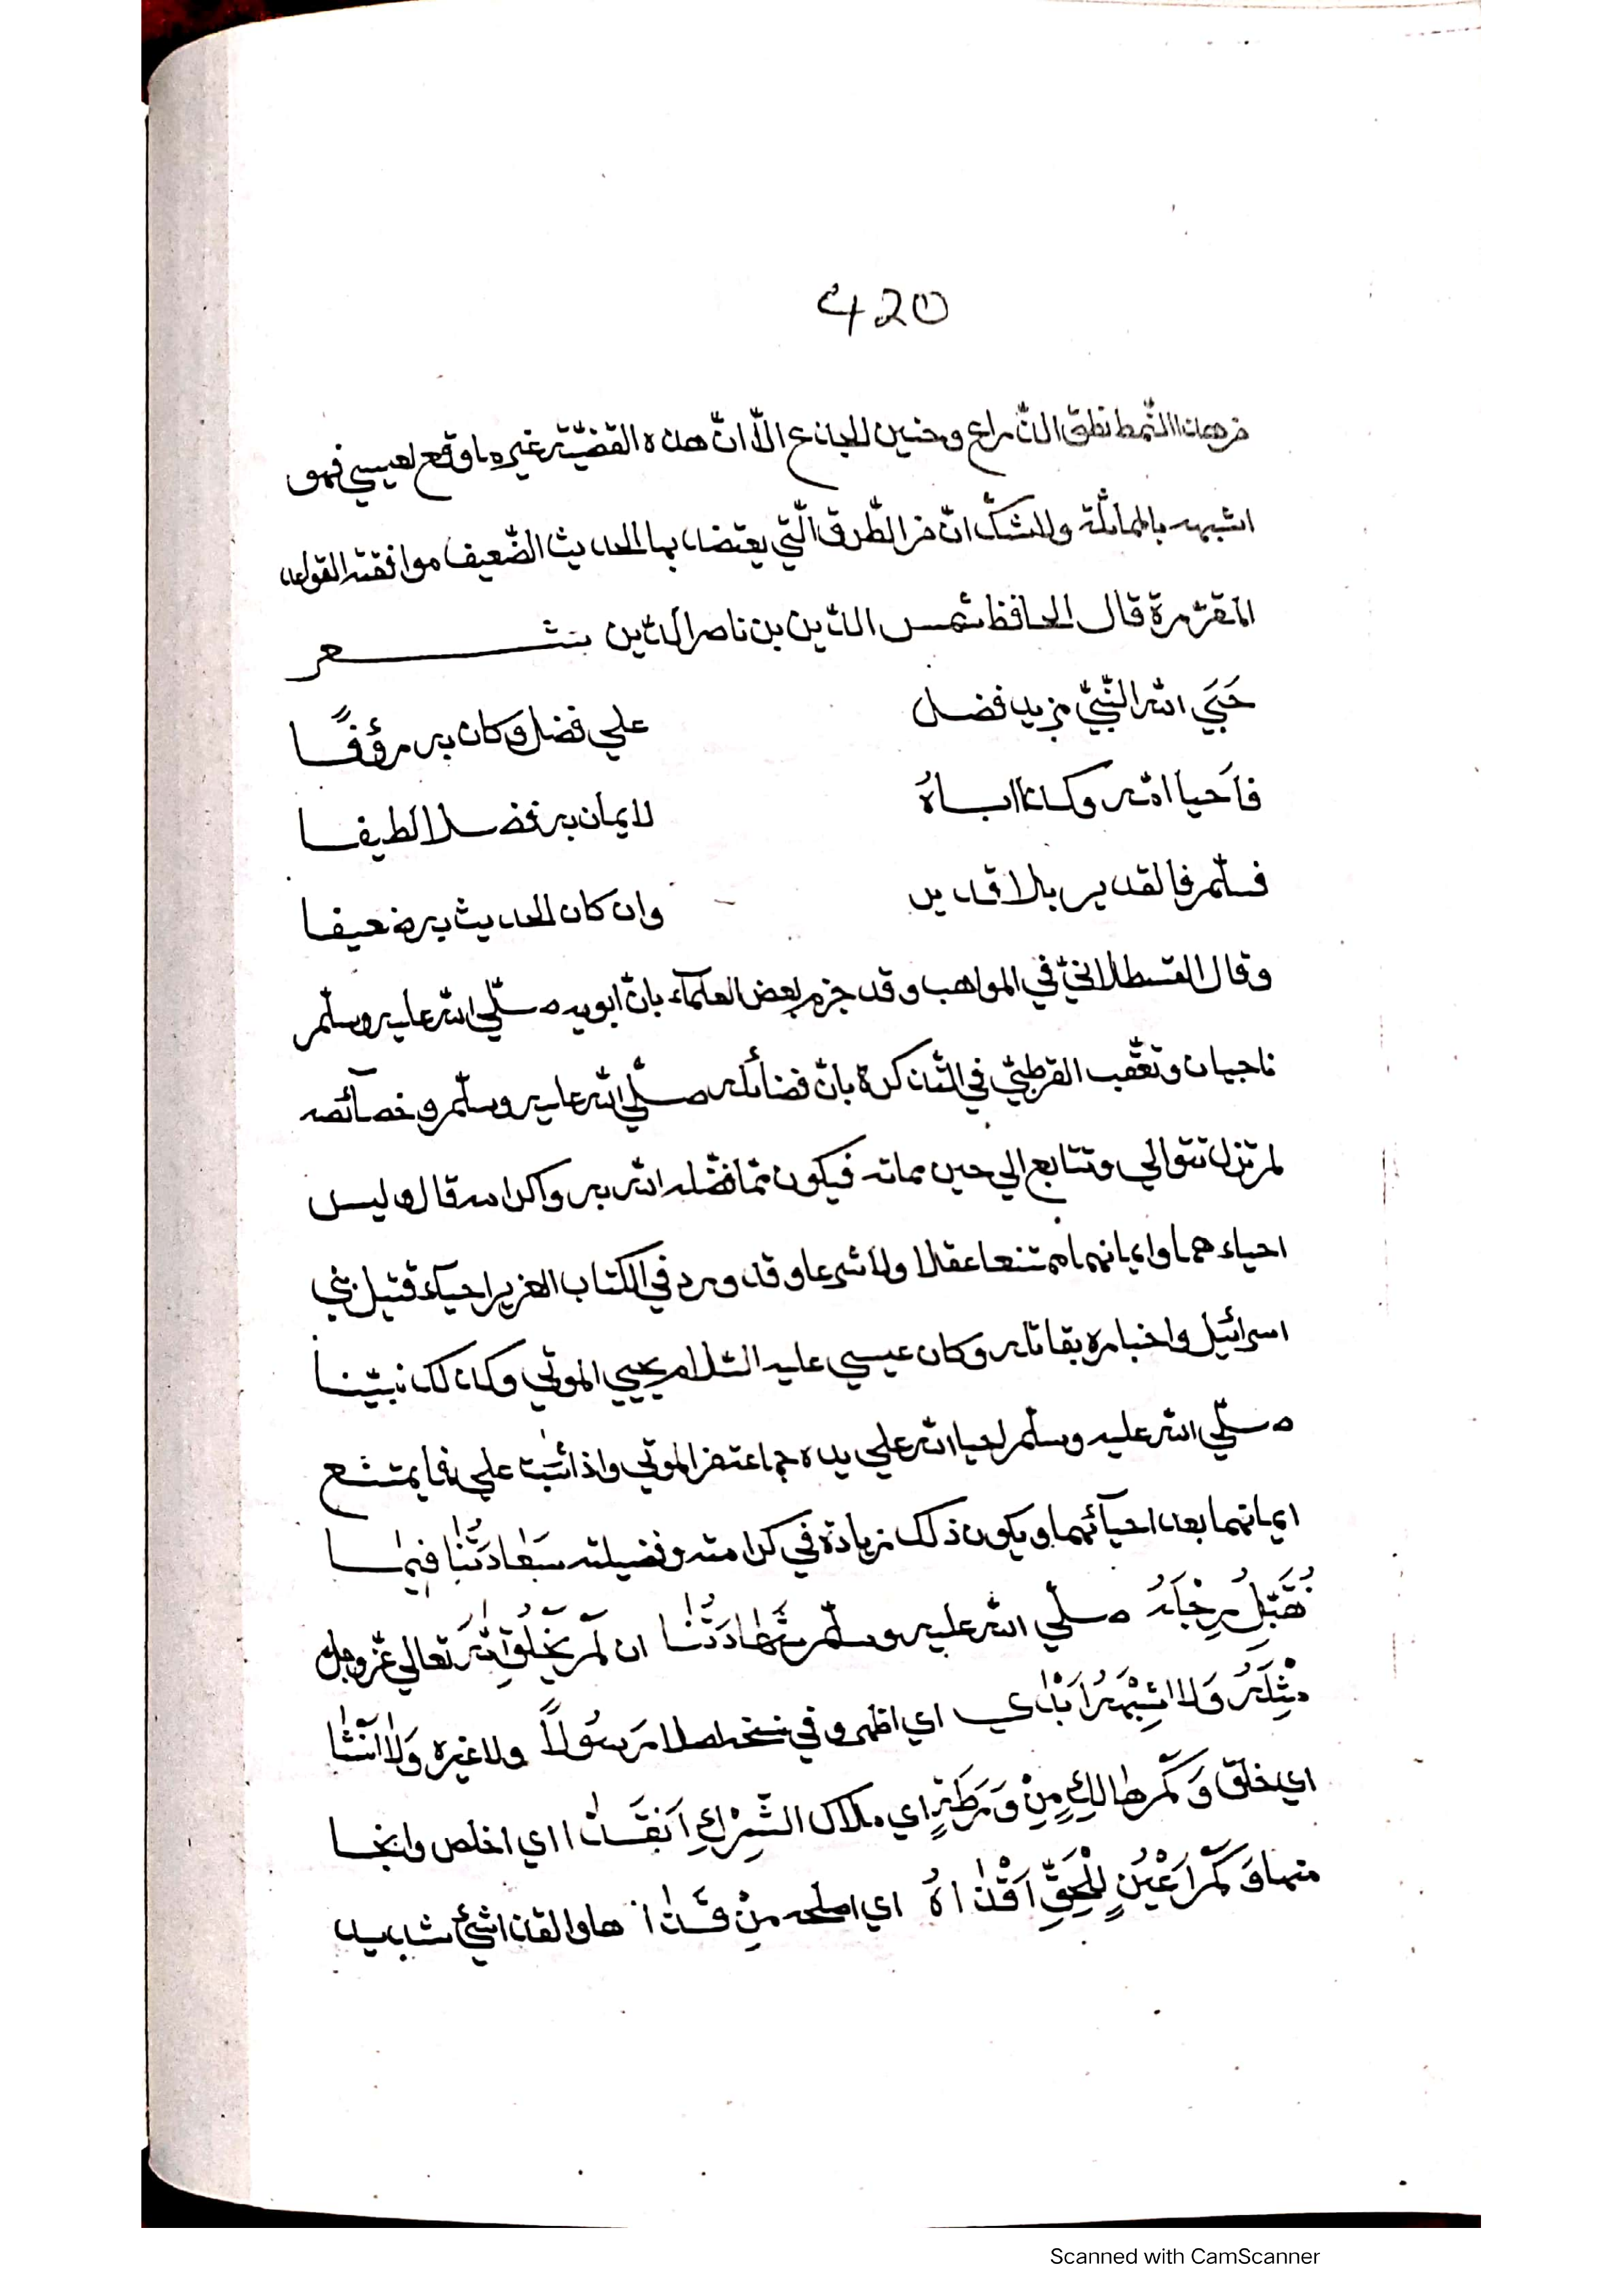 420
من هذا النّمط نطق الذّراع وحنين الجذع الاّ انّ هذه القضيّة غير ما وقع لعيسي فهو
اشبه بالمماثلة ولا شكّ انّ من الطّرق الّتي يعتضد بها الحديث الضّعيف موافقته القواعد
المقرّرة قال الحافظ شمس الدّين بن ناصر الدّين شعر
حَبَي الله النّبيّ مزيد فضل علي فضل وكان به رؤفًا
فاَحيا امّه وكذا اباهُ لايمان به فضلا لطيفا
فسلّم فالقدير بذا قدير وان كان الحديث به ضعيفا
وقال القسطلانيّ في المواهب وقد جزم بعض العلمآء بانّ ابويه صلّي الله عليه وسلّم
ناجيان وتعقّب القرطبيّ في التّذكرة بانّ فضائله صلّي الله عليه وسلّم وخصآئصه
لم تزل تتوالي وتتابع الي حين مماته فيكون ممّا فضّله الله به واكرامه قال وليس
احياءهما وايمانهما ممتنعا عقلا ولا شرعا وقد ورد في الكتاب العزيز احيآء قتيل بني
اسرائيل واخباره بقاتله وكان عيسي عليه السّلام يحيي الموتي وكذلك نبيّنا
صلّي الله عليه وسلّم احيا الله علي يده جماعة من الموتي واذا ثبت فما يمتنع
ايمانهما بعد احيآئهما ويكون ذلك زيادة في كرامته وفضيلته سَعَادَتُنَا فِيمَا
نُقَبِّلُ رِجْلَهُ صلّي الله عليه وسلّم شَهَادَتُنَا ان لَمْ يَخْلُقِ اللهُ تعالي عزّ وجلّ
مِثْلَهُ وَلا اشِبْهَهُ اَبْدَاي اي اظهر وفي نسخة رَسُولاً ولا غيره وَلاَ اَنْشَا
اي خلق وَكَمْ هَالِكٍ مِنْ وَرْطَةِ اي هلاك الشِّرْكِ اَنْقَذَا اي اخلص وانجا
منها وَكَمْ اَعْيُنٍ لِلْحَقِّ اَقْذَاهُ اي اصلحه مِنْ قَذَا ها والقذا شيء شديد
Scanned with CamScanner